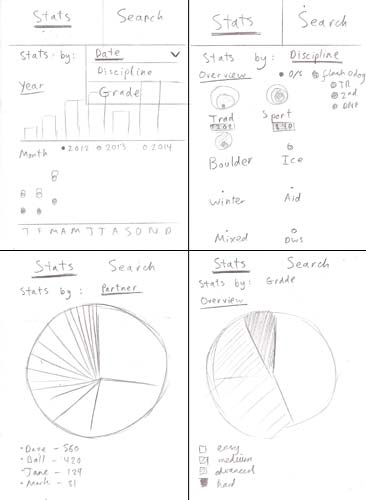 Stats Search
Stats by: Date
Discipline
Grade
Year
Month 2012 2013 2014
J F M A M J J A S O N D
Stats Search
Stats by: Discipline
Overview O/S flash
TR
2nd
DNF
Trad Sport
Boulder Ice
Winter Aid
Mixed DWS
Stats Search
Stats by: Partner
Dave - 560
Ball - 420
Jane - 129
Mark - 31
Stats Search
Stats by: Grade
Overview
easy
medium
advanced
hard